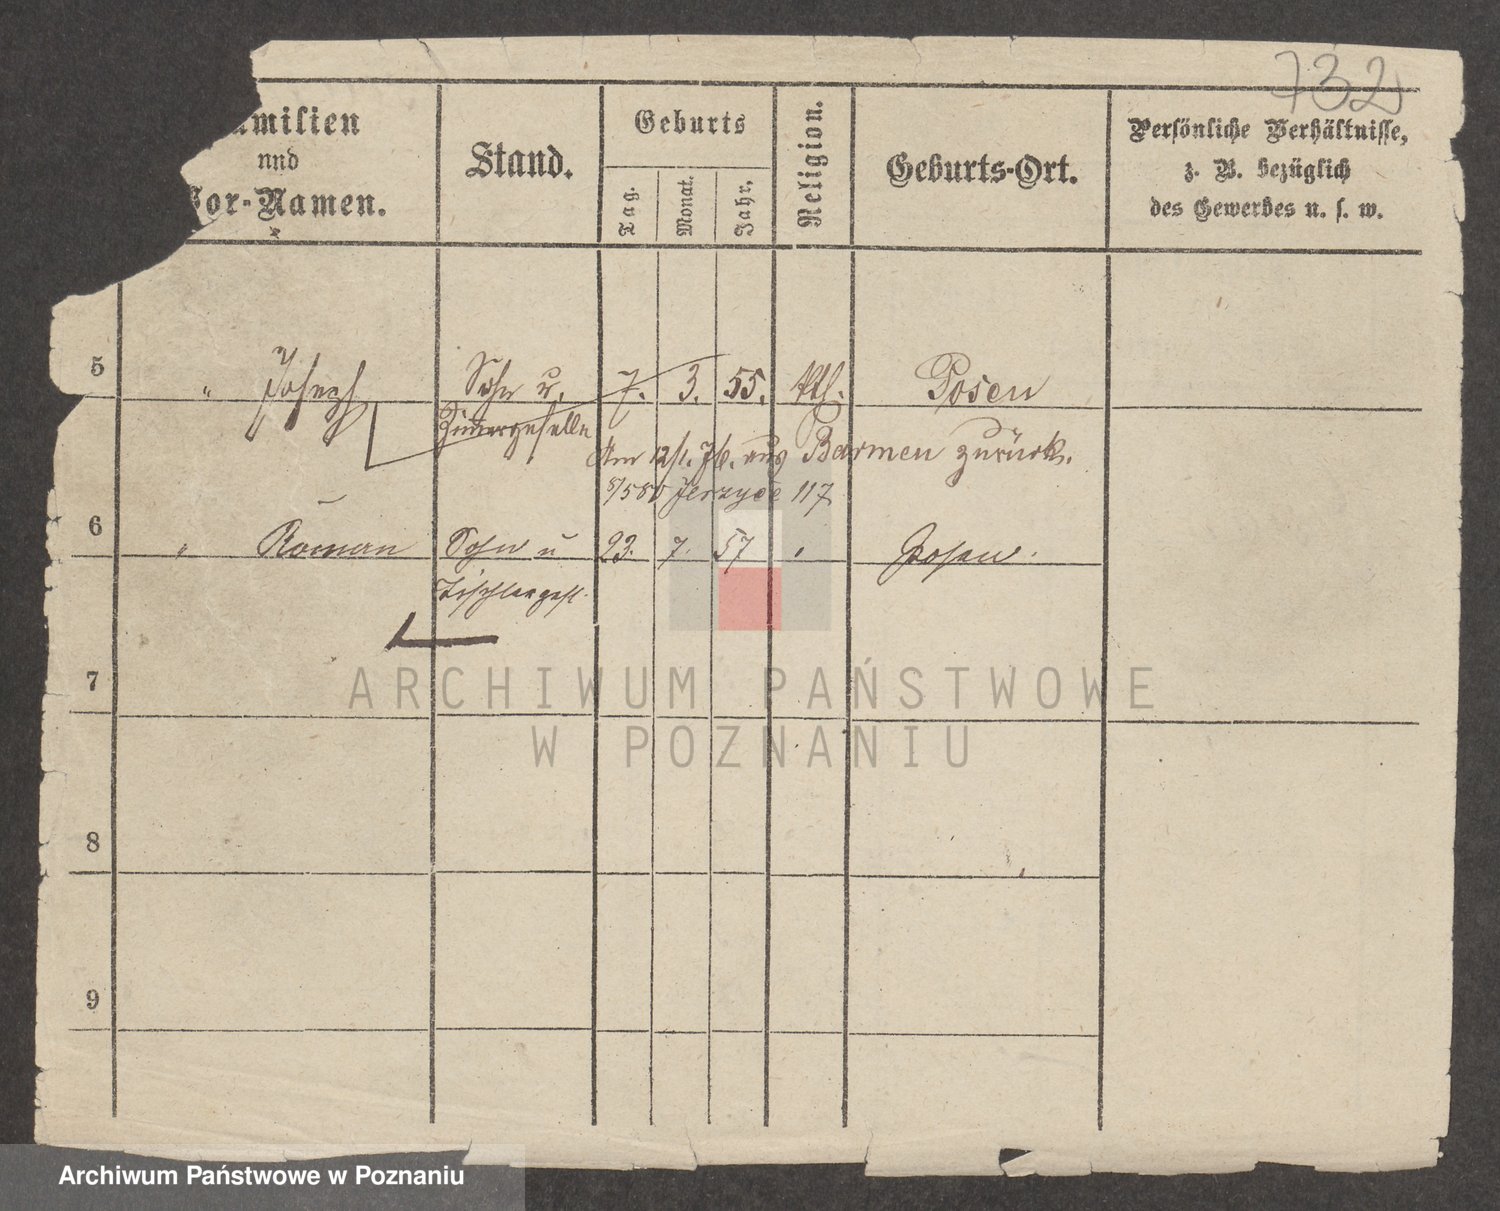 732
Familien
und
Vor-Namen.
Stand.
Geburts
Tag.
Monat.
Jahr.
Religion.
Geburts-Ort.
Persönliche Verhältnisse,
z. B. bezüglich
des Gewerbes u. s. w.
5
" Joseph Sohn u. 7. 3. 55. kth. Posen
Zimmergeselle
Am 12/1. 76. aus Barmen zurück.
8/5 80 Jerzyce 117
6
" Roman Sohn u 23. 7. 57 " Posen.
Tischlerges.
7
8
9
ARCHIWUM PAŃSTWOWE
W POZNANIU
Archiwum Państwowe w Poznaniu